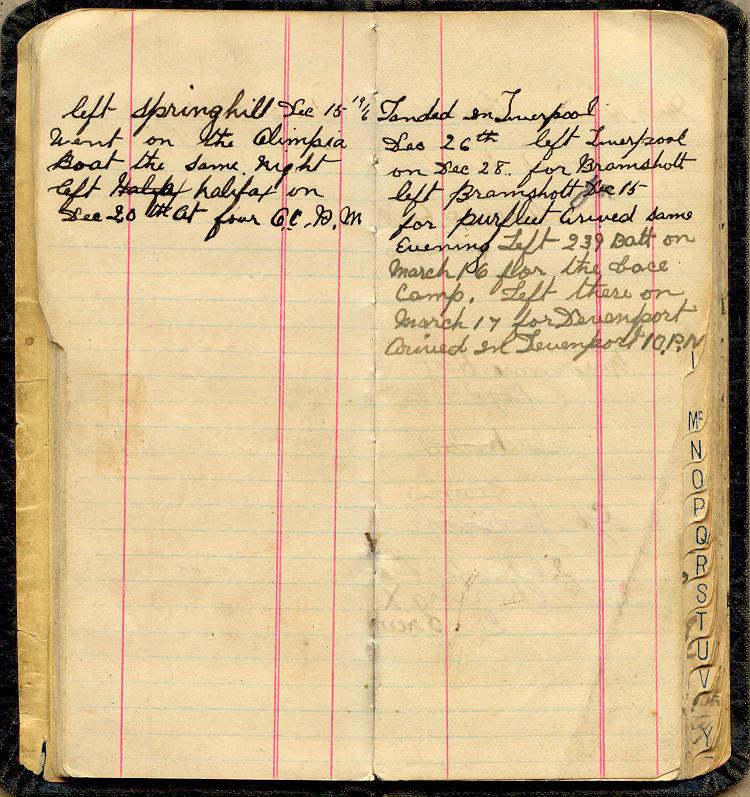 left Springhill Dec 15 1916
Went on the Olimpia
Boat the same night
left Halifax halifax on
Dec 20th At four O.C. P.M
Landed in Liverpool
Dec 26th left Liverpool
on Dec 28. for Bramshott
left Bramshott Jan 15
for purfleet Arived same
Evening Left 239 Batt on
March 16 for the bace
Camp. Left there on
March 17 for Devenport
Arived in Devenport 10.P.M
Mc
N
O
P
Q
R
S
T
U
V
Y